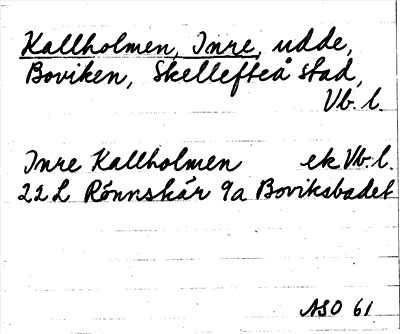 Kallholmen, Inre, udde,
Boviken, Skellefteå stad,
Vb. l.
Inre Kallholmen ek Vb. l.
22 L Rönnskär 9a Boviksbadet
ASO 61